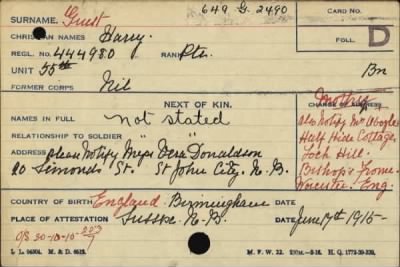 649. G. 2490
SURNAME. Guest
CARD NO.
CHRISTIAN NAMES Harry.
FOLL. D
REGL. NO. 444980 RANK Pte.
UNIT 55th Bn
FORMER CORPS Nil
NEXT OF KIN.
CHANGE OF ADDRESS
NAMES IN FULL not stated
RELATIONSHIP TO SOLDIER " "
ADDRESS please Notify Miss Vera Donaldson
20 Simonds St. St John City. N. B.
Mother
also Notify Mrs
Half Hide Cottage
Lock Hill.
Bishop's Frome.
Worcester. Eng.
COUNTRY OF BIRTH England. Birmingham DATE
PLACE OF ATTESTATION Sussex. N.B. DATE June 17th 1915-
O/S 30-10-15
L. L. 94604. M. & D. 6612. M. F. W. 22.